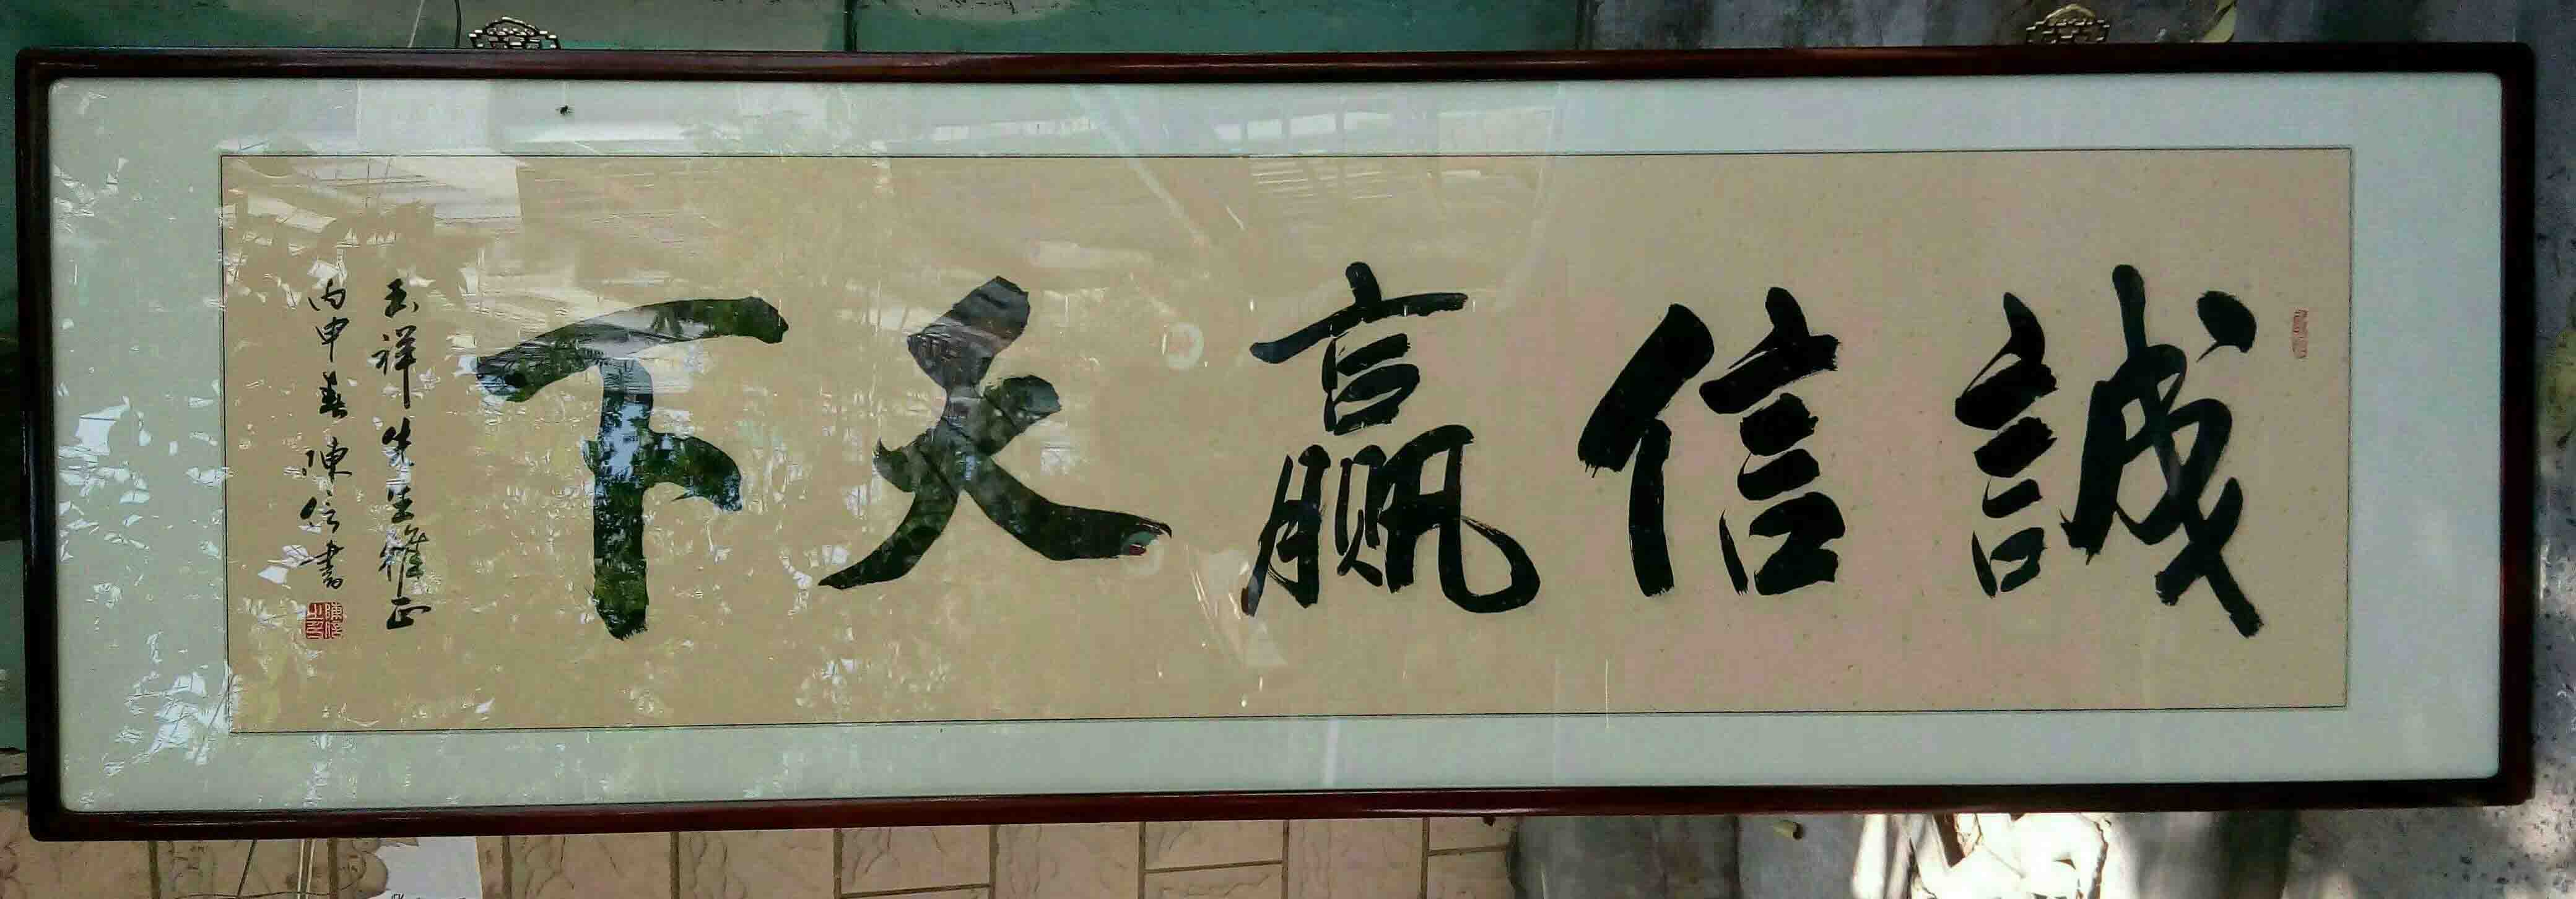 誠信贏天下
玉祥先生雅正
丙申春陳信書